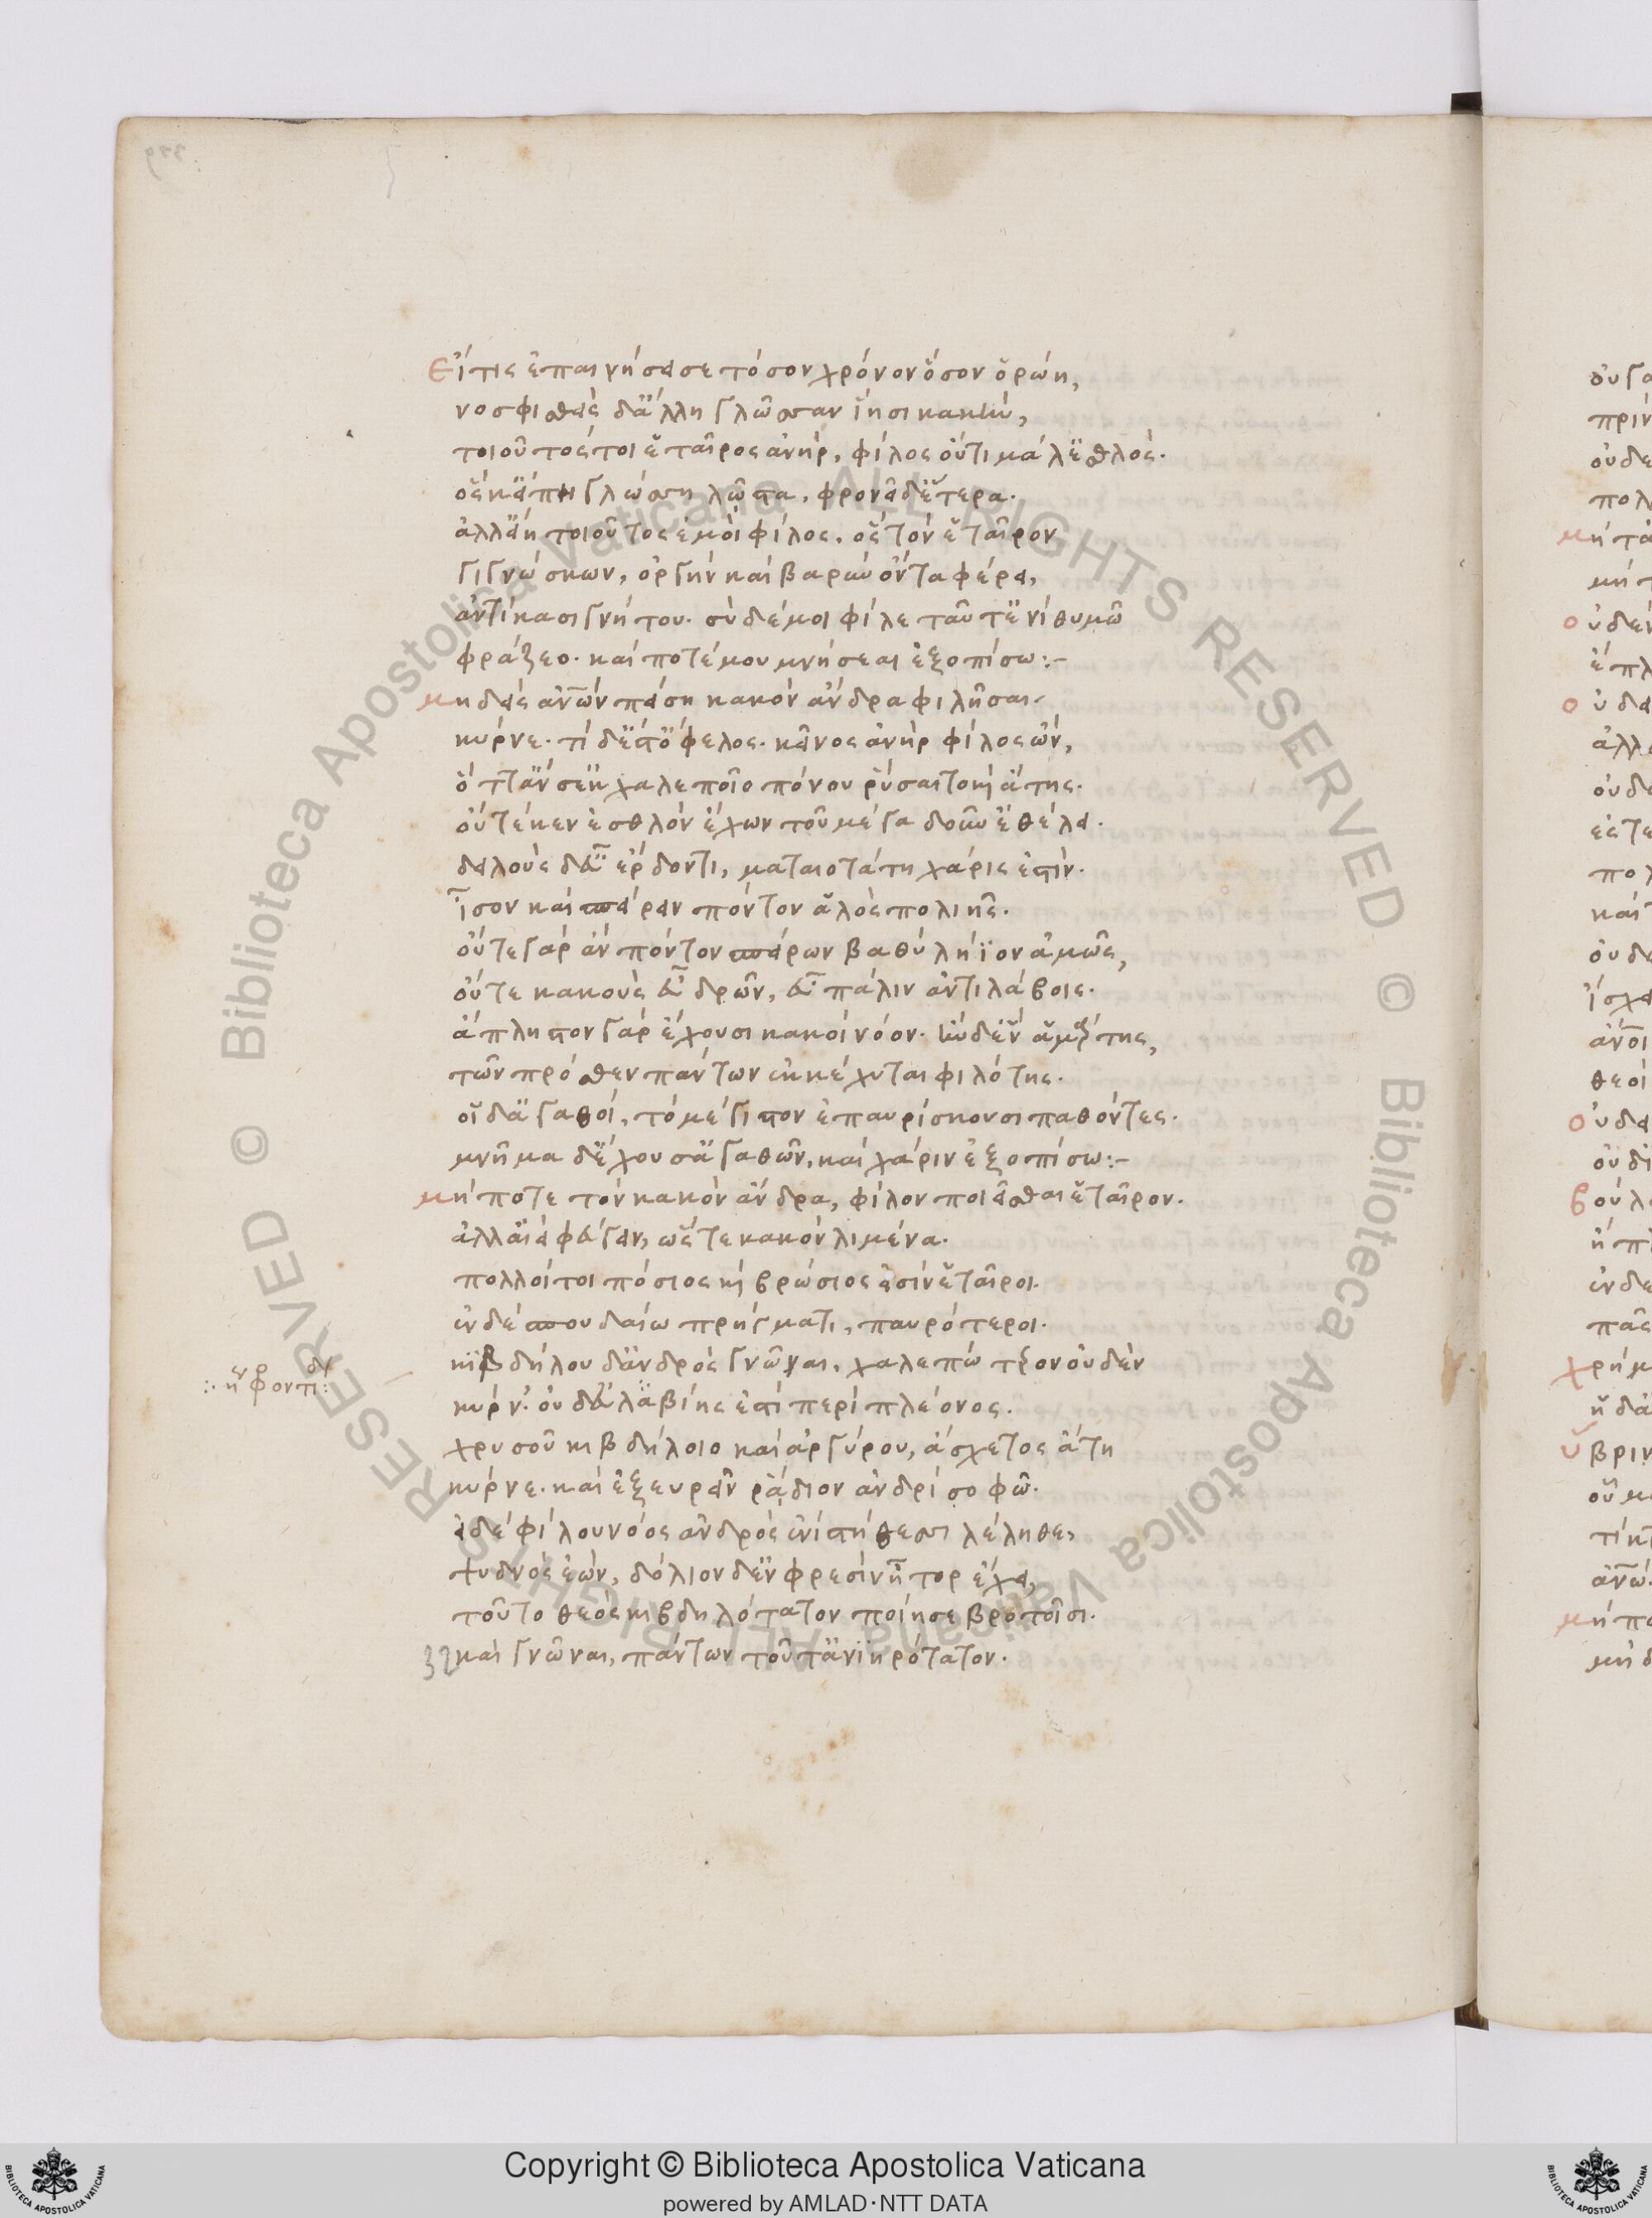 Εἴ τις ἐπαινήσει σε τόσον χρόνον ὅσον ὁρώη,
νοσφισθεὶς δ' ἄλλη γλῶσσαν ἵησι κακὴν,
τοιοῦτός τοι ἑταῖρος ἀνὴρ, φίλος οὔτι μάλ' ἐσθλὸς.
ὅς κ' εἴπῃ γλώσση λῶστα, φρονεῖ δ' ἕτερα.
ἀλλ' εἴη τοιοῦτος ἐμοὶ φίλος, ὃς τὸν ἑταῖρον
γιγνώσκων, ὀργὴν καὶ βαρὺν ὄντα φέρει,
ἀντὶ κασιγνήτου. σὺ δέ μοι φίλε ταῦτ' ἐνὶ θυμῶ
φράζεο. καί ποτέ μου μνήσεαι ἐξοπίσω:-
μηδείς σ' ἀνθρώπων πείση κακὸν ἄνδρα φιλῆσαι.
κύρνε. τί δ' ἔστ' ὄφελος. κεῖνος ἀνὴρ φίλος ὢν,
οὔτ' ἄν σ' ἐκ χαλεποῖο πόνου ῥύσαιτο καὶ ἄτης.
οὔτέ κεν ἐσθλὸν ἔχων τοῦ μεταδοῦν ἐθέλει.
δειλοὺς δ' εὖ ἔρδοντι, ματαιοτάτη χάρις ἐστίν.
ἶσον καὶ σπείρειν πόντον ἁλὸς πολιῆς.
οὔτε γὰρ ἂν πόντον σπείρων βαθὺ λήϊον ἀμῶς,
οὔτε κακοὺς εὖ δρῶν, εὖ πάλιν ἀντιλάβοις.
ἄπληστον γὰρ ἔχουσι κακοὶ νόον. ἢν δ' ἓν ἁμάρτης,
τῶν πρόσθεν πάντων ἐκκέχυται φιλότης.
οἱ δ' ἀγαθοὶ, τὸ μέγιστον ἐπαυρίσκουσι παθόντες.
μνῆμα δ' ἔχουσ' ἀγαθῶν, καὶ χάριν ἐξοπίσω:-
μή ποτε τὸν κακὸν ἄνδρα, φίλον ποιεῖσθαι ἑταῖρον.
ἀλλ' αἰεὶ φεύγειν, ὥστε κακὸν λιμένα.
πολλοί τοι πόσιος καὶ βρώσιος εἰσὶν ἑταῖροι.
ἐν δὲ σπουδαίω πρήγματι, παυρότεροι.
κιβδήλου δ' ἀνδρὸς γνῶναι, χαλεπώτερον οὐδὲν
κύρν'. οὐδ' εὐλαβίης ἐστὶ περὶ πλέονος.
χρυσοῦ κιβδήλοιο καὶ ἀργύρου, ἄσχετος ἄτη
κύρνε. καὶ ἐξευρεῖν ῥάδιον ἀνδρὶ σοφῶ.
εἰ δὲ φίλου νόος ἀνδρὸς ἐνὶ στήθεσσι λέληθε,
ψυδνὸς ἐὼν, δόλιον δ' ἐν φρεσὶν ἦτορ ἔχει,
τοῦτο θεὸς κιβδηλότατον ποίησε βροτοῖσι.
καὶ γνῶναι, πάντων τοῦτ' ἀνιηρότατον.
Copyright © Biblioteca Apostolica Vaticana
powered by AMLAD·NTT DATA